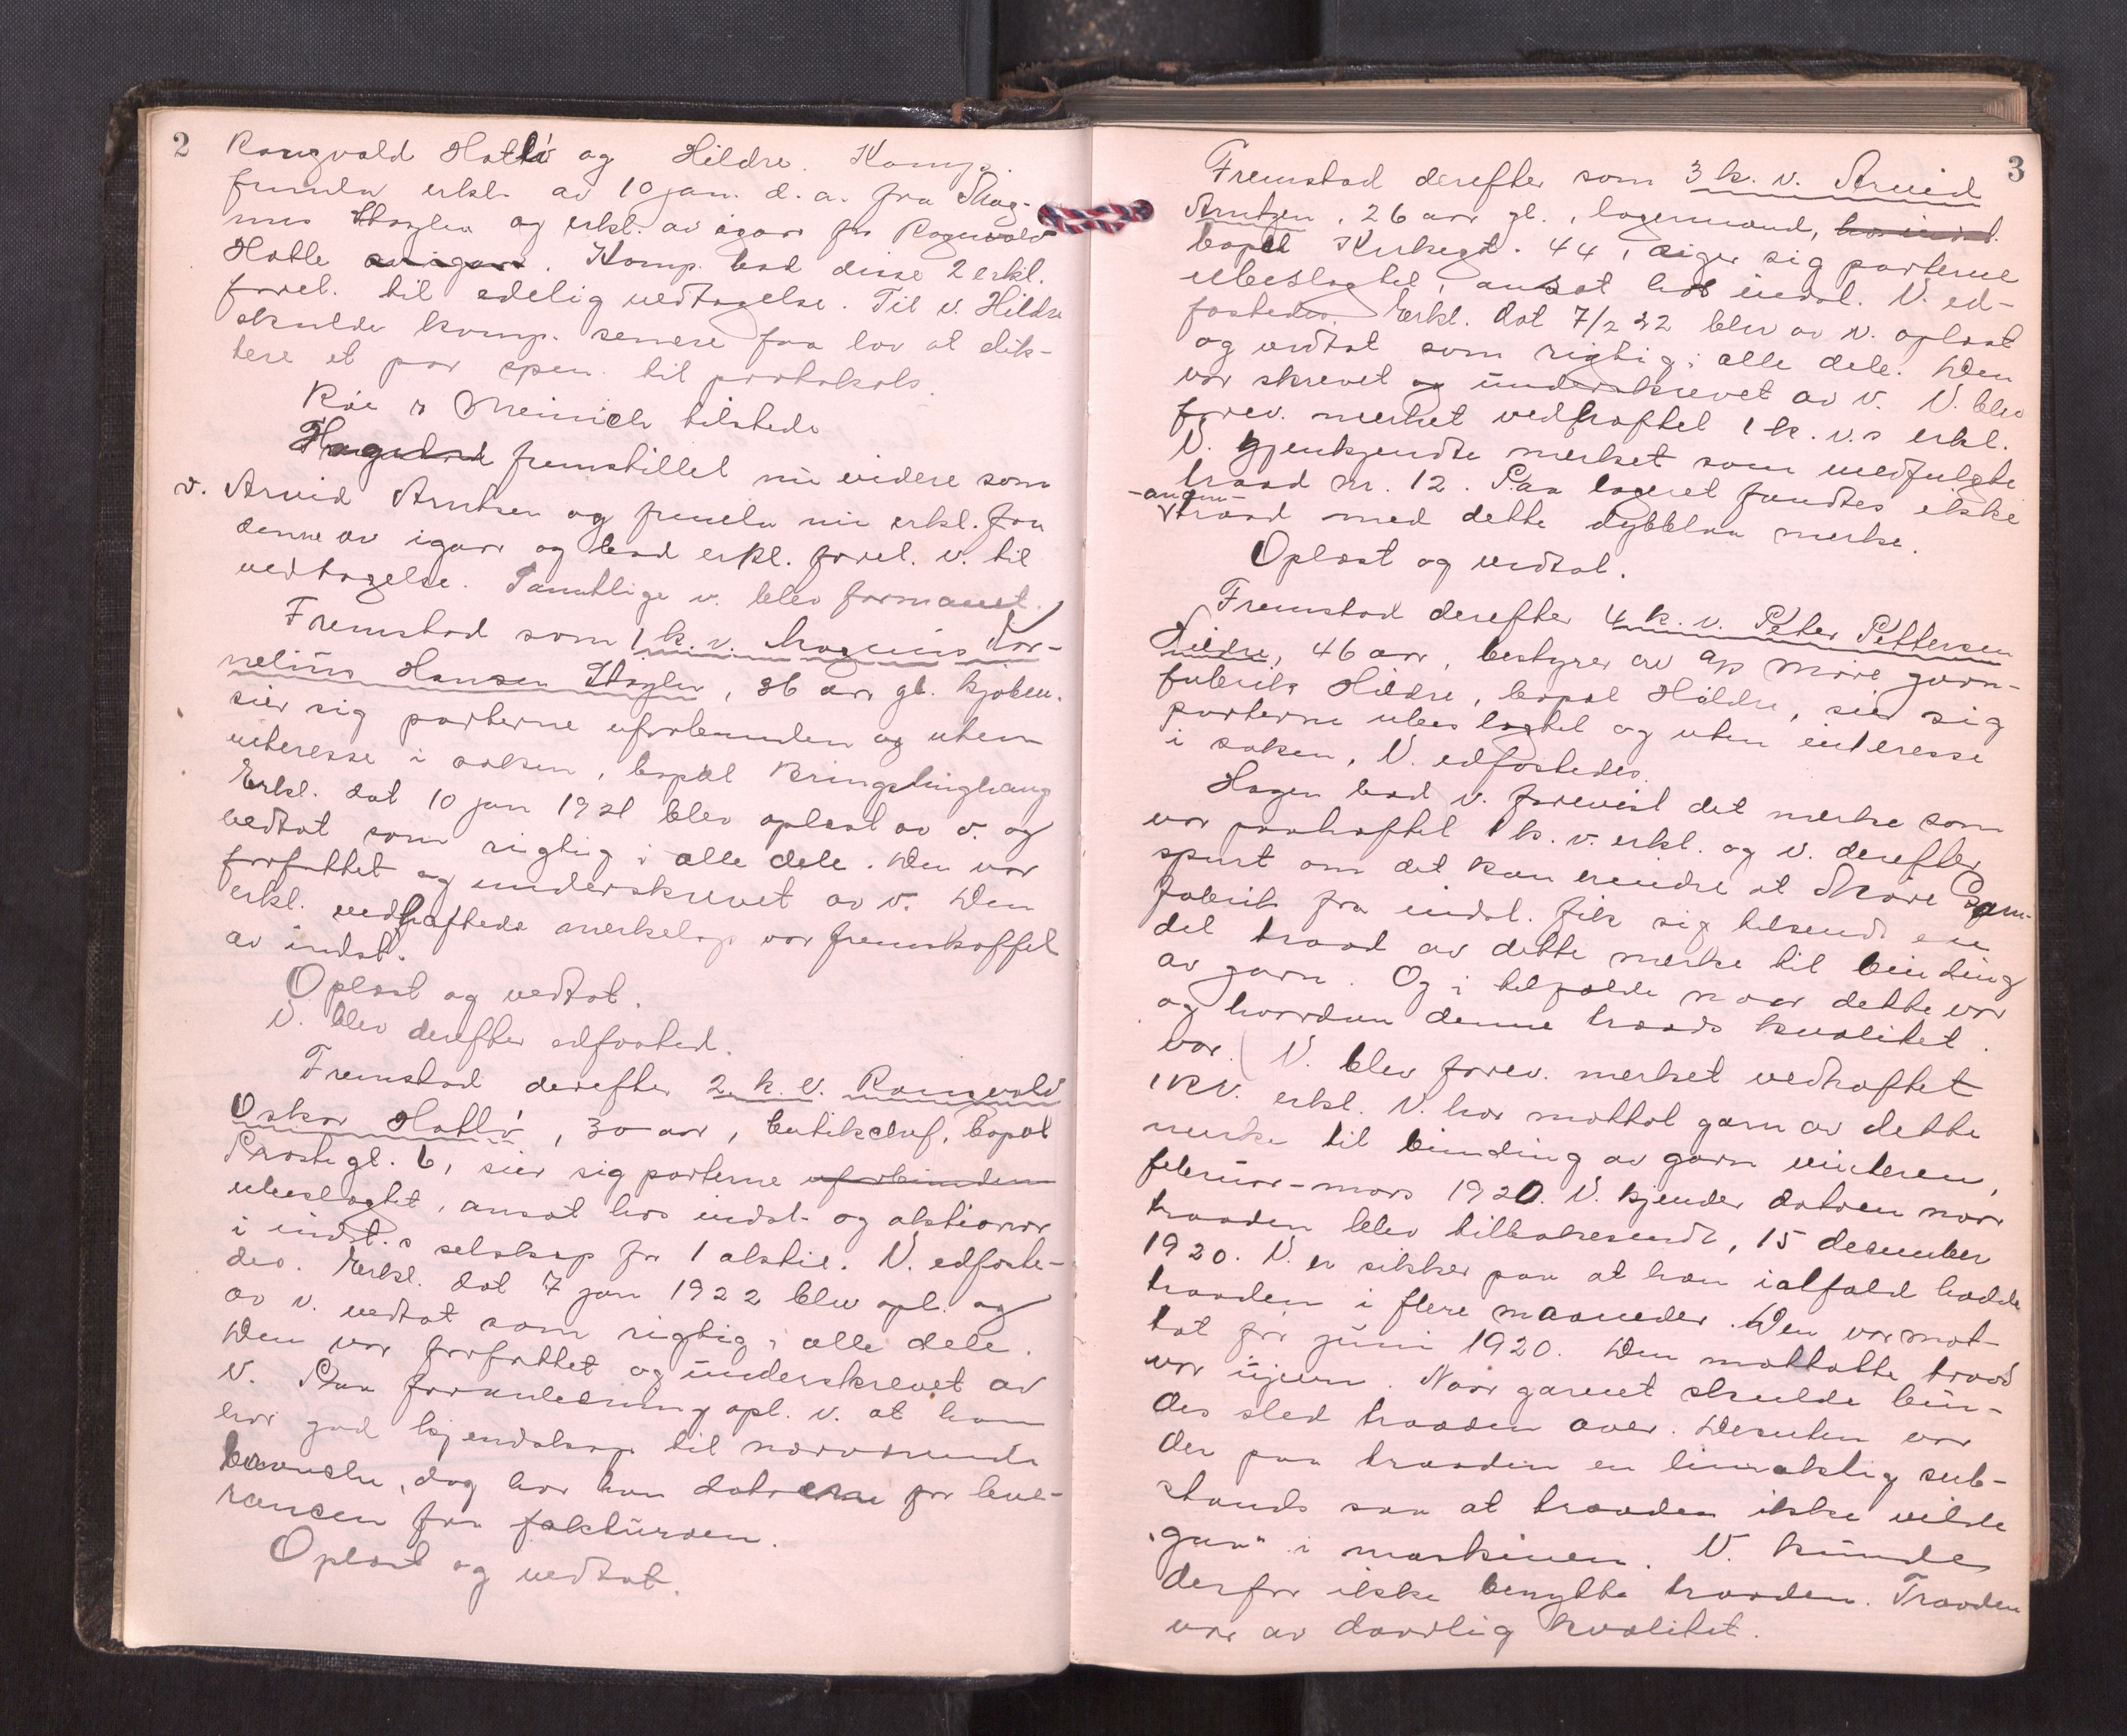 2
Rangvald Hatlé og Hildre. Komp.
fremla erkl. av 10 jan. d. a. fra Mag-
nus Støylen og erkl. av igaar fra Ragnvald
Hatle av igaar. Komp. bad disse 2 erkl.
forel. til edelig vedtagelse. Til v. Hildre
skulde komp. senere faa lov at dik-
tere et par spm. til protokols.
Roe & Meinich tilstede
Hagen fremstillet nu videre som
v. Arvid Arntzen og fremla nu erkl. fra
denne av igaar og bad erkl. forel. v. til
vedtagelse. Samtlige v. blev formanet.
Fremstod som 1 k. v. Magnus Kor-
nelius Hansen Støylen, 36 aar gl. kjøbm.
sier sig parterne uforbunden og uten
interesse i saken, bopæl Bringsinghaug
Erkl. dat 10 jan 1921 blev oplæst av v. og
vedtat som rigtig i alle dele. Den var
forfattet og underskrevet av v. Den
erkl. vedhæftede merkelap var fremskaffet
av indst.
Oplæst og vedtat.
V. blev derefter edfæstet.
Fremstod derefter 2. k. v. Rangvald
Oskar Hatlé, 30 aar, butikchef, bopæl
Prostegt. 6, sier sig parterne uforbunden
ubeslægtet, ansat hos indst. og aktionær
i indst.s selskap for 1 aktie. V. edfæste-
des. Erkl. dat 7 jan 1922 blev opl. og
av v. vedtat som rigtig i alle dele.
Den var forfattet og underskrevet av
v. Paa foranledning opl. v. at han
har god kjendskap til nærværende
branche, dog har han datoerne for leve-
rancen fra fakturaen.
Oplæst og vedtat.
3
Fremstod derefter som 3 k. v. Arvid
Arntzen, 26 aar gl., lagermand, hos indst.
bopæl Kirkegt. 44, siger sig parterne
ubeslægtet, ansat hos indst. V. ed-
fæstedes. Erkl. dat 7/2 22 blev av v. oplæst
og vedtat som rigtig i alle dele. Den
var skrevet og underskrevet av v. V. blev
forev. merket vedhæftet 1 k. v.s erkl.
V. gjenkjendte merket som medfulgte
traad nr. 12. Paa lageret fandtes ikke
-angen-
traad med dette dypblaa merke.
Oplæst og vedtat.
Fremstod derefter 4 k. v. Peter Pettersen
Hildre, 46 aar, bestyrer av A/S Møre garn-
fabrik Hildre, bopæl Hildre, sier sig
parterne ubeslægtet og uten interesse
i saken, V. edfæstedes.
Hagen bad v. forevist det merke som
var paahæftet 1 k. v. erkl. og v. derefter
spurt om det kan erindre at Møre Garn-
fabrik fra indst. fik sig tilsendt en
del traad av dette merke til binding
av garn. Og i tilfælde naar dette var
og hvordan denne traads kvalitet
var. V. blev forev. merket vedhæftet
1 KV. erkl. V. har mottat garn av dette
merke til binding av garn vinteren,
februar-mars 1920. V. kjender datoen naar
traaden blev tilbakesendt, 15 december
1920. V. er sikker paa at han ialfald hadde
traaden i flere maaneder. Den var mot-
tat før juni 1920. Den mottatte traad
var ujevn. Naar garnet skulde bin-
des sled traaden over. Desuten var
der paa traaden en limaktig sub-
stands saa at traaden ikke vilde
"gaa" i maskinen. V. kunde
derfor ikke benytte traaden. Traaden
var av daarlig kvalitet.